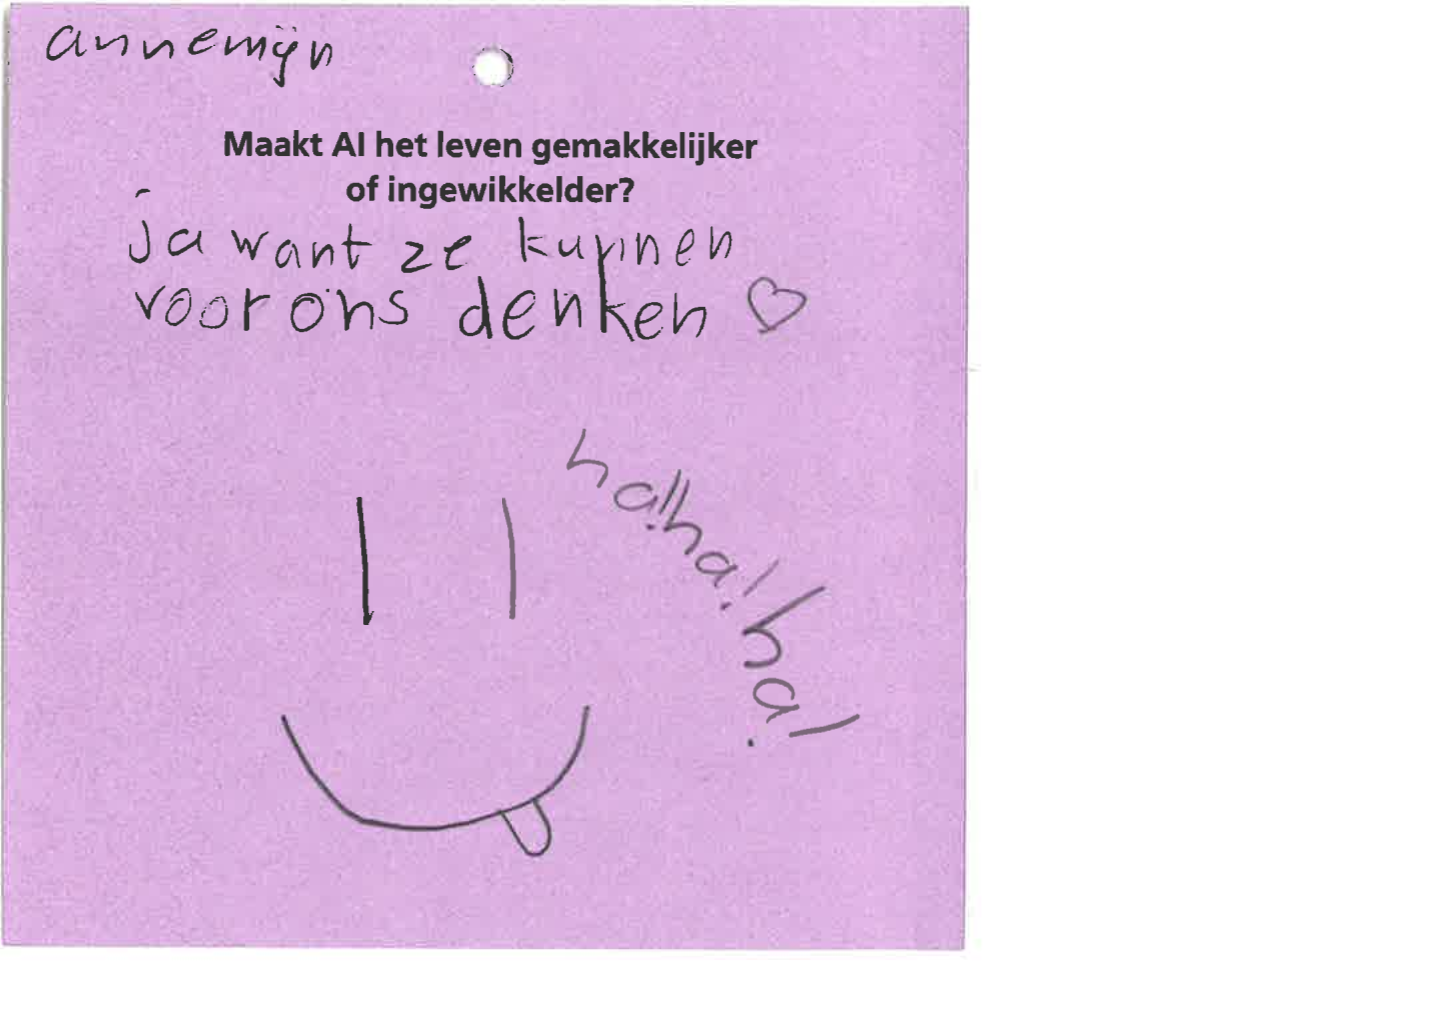 annemijn
Maakt AI het leven gemakkelijker
of ingewikkelder?
ja want ze kunnen
voor ons denken
ha!ha!ha!